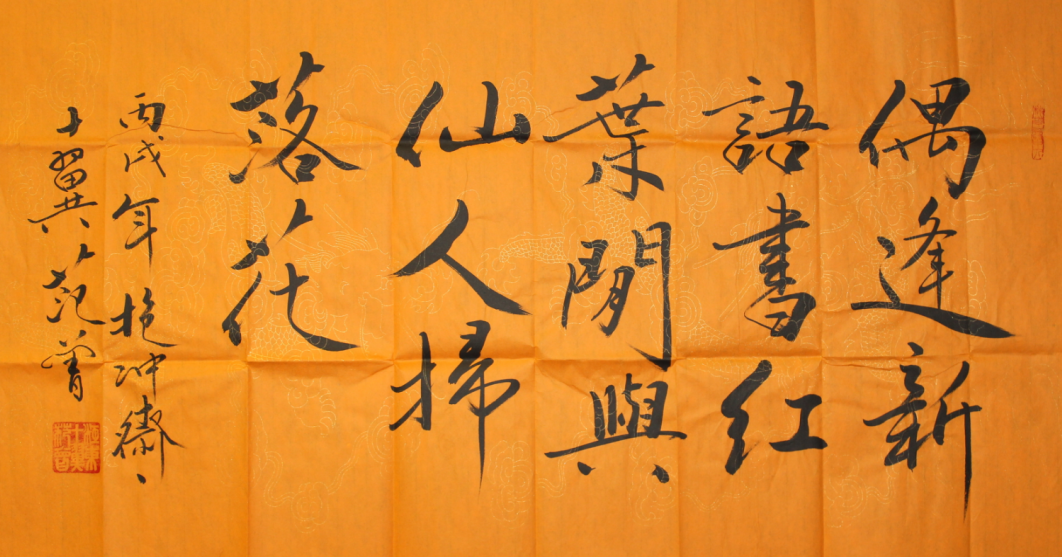 偶逢新
語書红
葉閒與
仙人掃
落花
丙戌年抱冲齋
十翼范曾